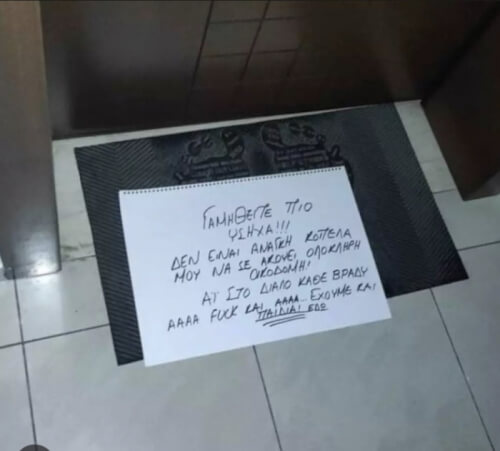 ΓΑΜΗΘΕΙΤΕ ΠΙΟ
ΥΣΗΧΑ!!!
ΔΕΝ ΕΙΝΑΙ ΑΝΑΓΚΗ ΚΟΠΕΛΑ
ΜΟΥ ΝΑ ΣΕ ΑΚΟΥΕΙ ΟΛΟΚΛΗΡΗ
ΟΙΚΟΔΟΜΗ!
ΑΤ ΣΤΟ ΔΙΑΛΟ ΚΑΘΕ ΒΡΑΔΥ
ΑΑΑΑ FUCK ΚΑΙ ΑΑΑΑ... ΕΧΟΥΜΕ ΚΑΙ
ΠΑΙΔΙΑ! ΕΔΩ